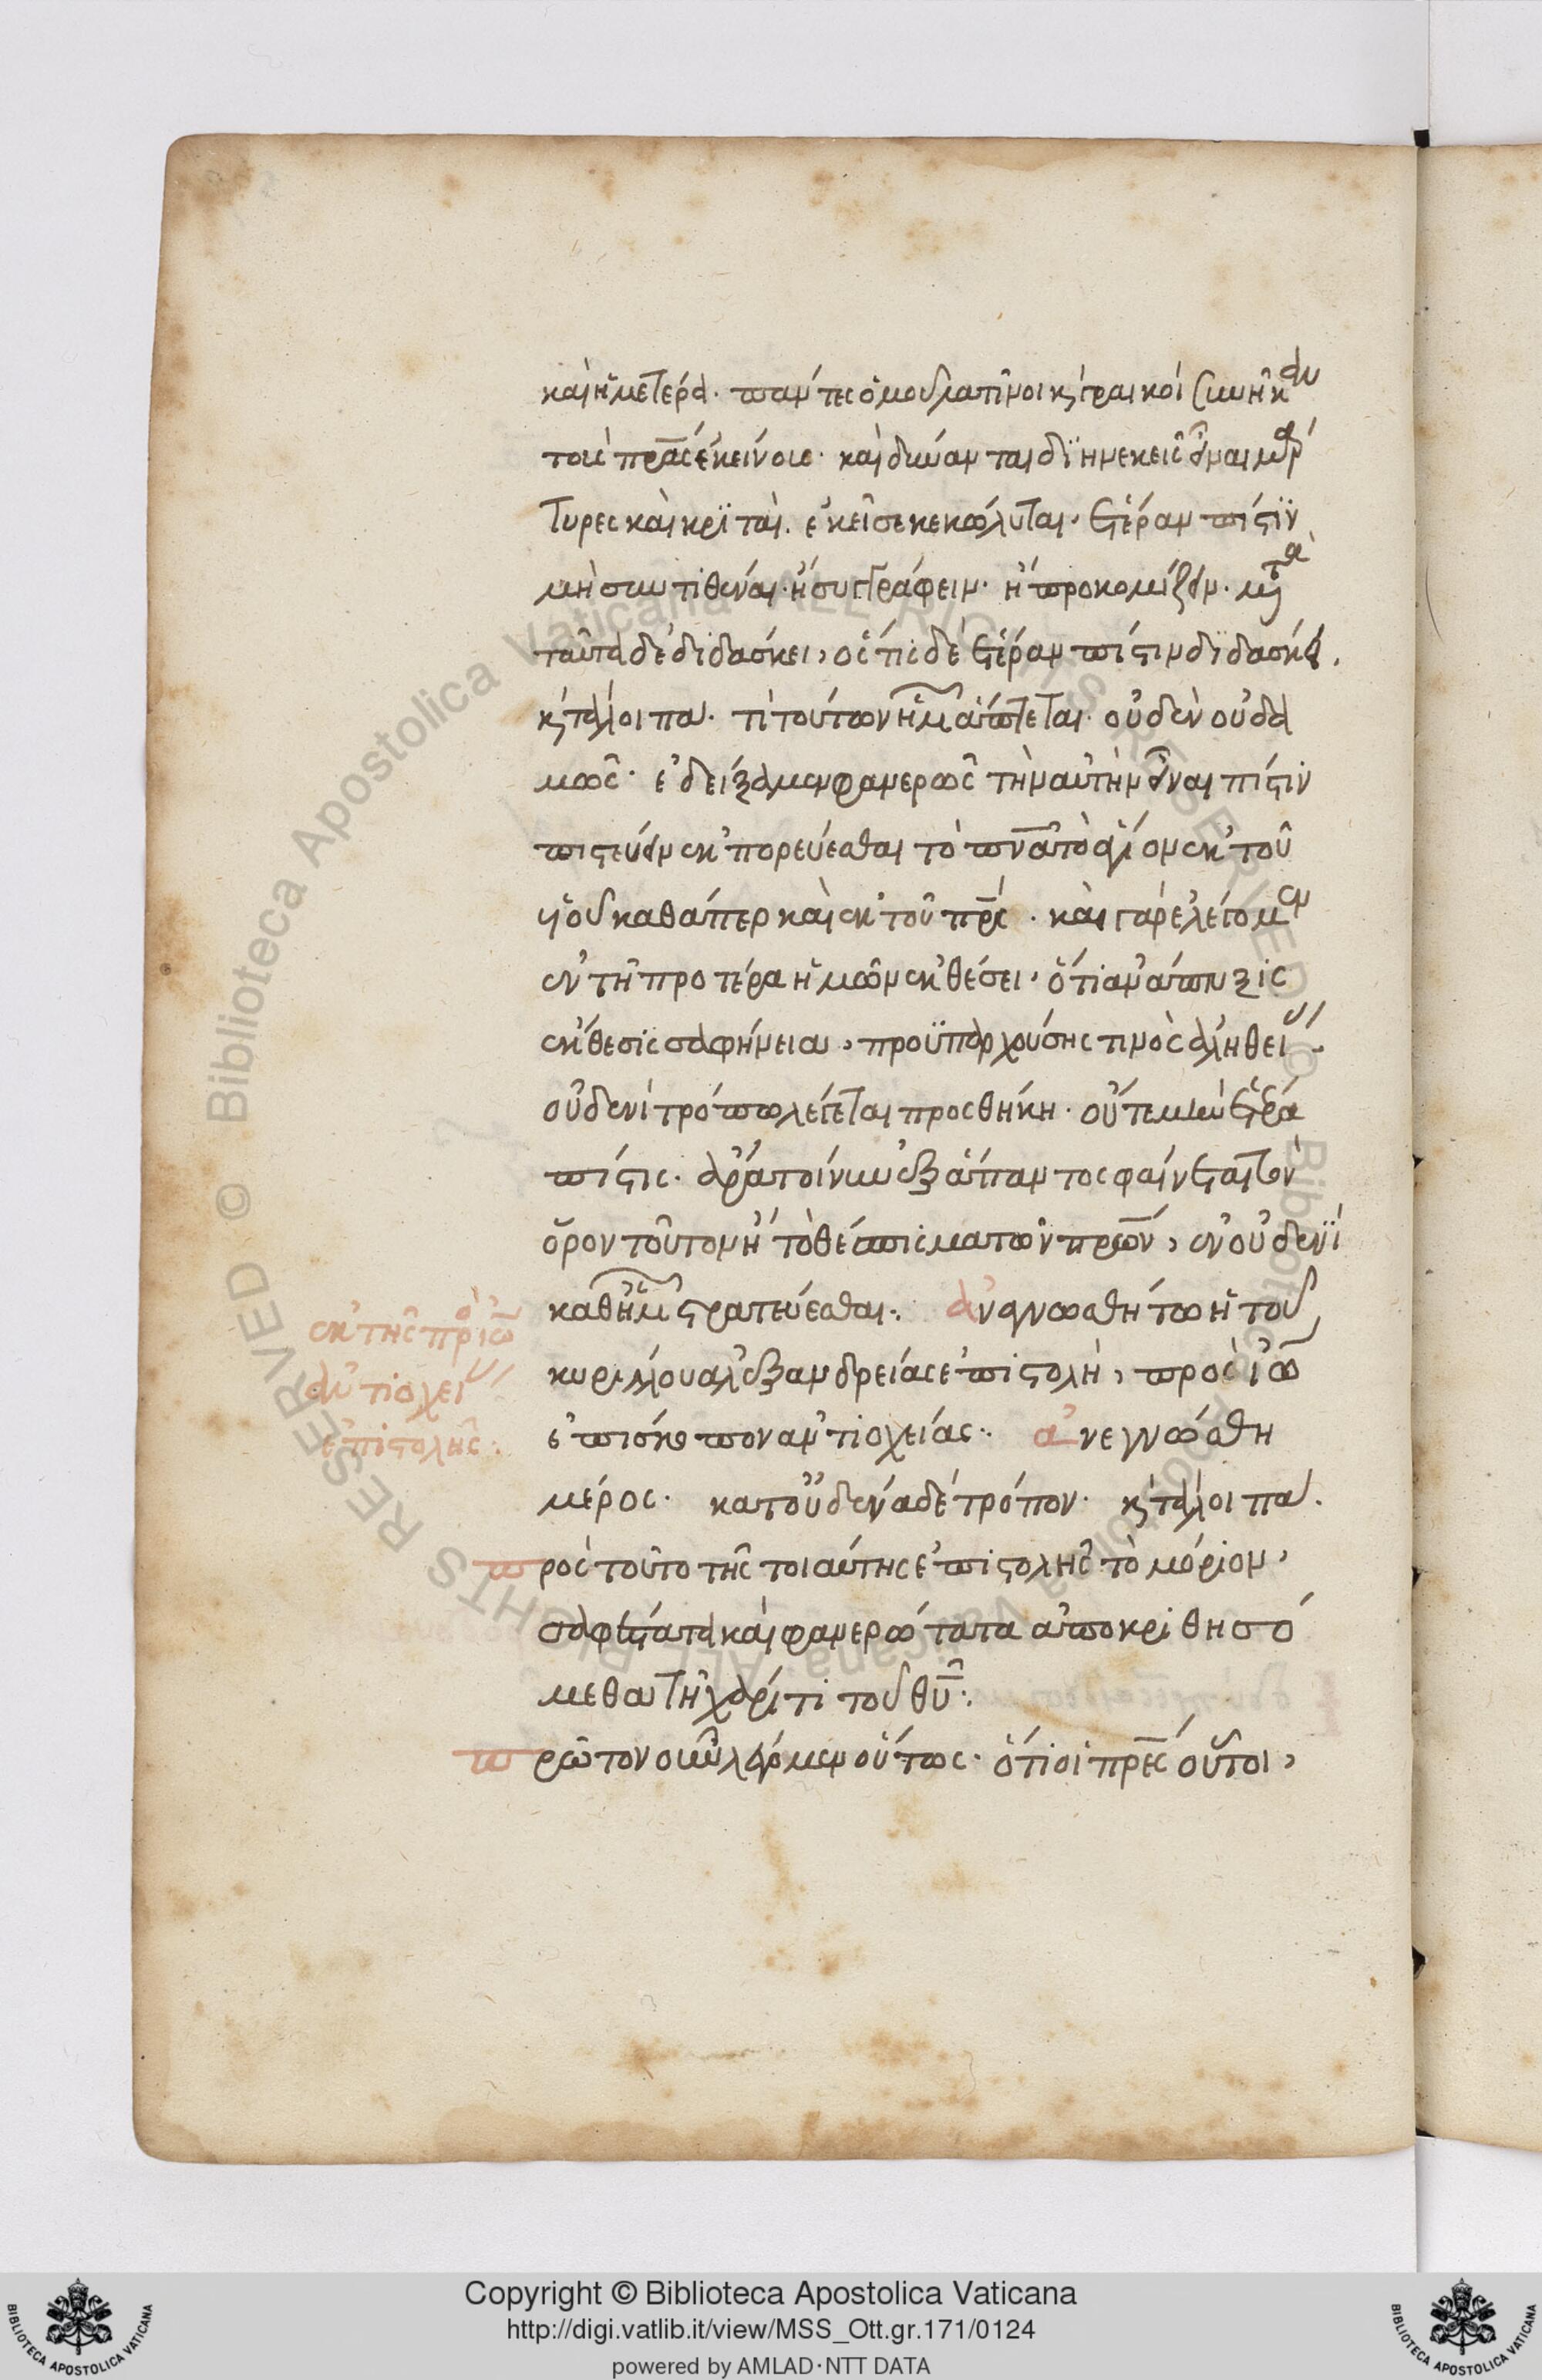 καὶ ἡμετέρα. πάντες ὁμοῦ λατῖνοι κ̀ γραικοὶ συνῆκαν
τοῖς πρ̅άσι ἐκείνοις. καὶ δύνανται διηνεκεῖς εἶναι μάρ
τυρες καὶ κριταί. ἐκεῖσε κεκώλυται. ἑτέραν πίστϊν
μὴ συντιθέναι. ἢ συγγράφειν. ἢ προκομίζειν. μετὰ
ταῦτα δὲ διδάσκει, ὅς τις δὲ ἑτέραν πίστιν διδάσκει.
κ̀ τὰ λοιπα. τί τούτων ἡμῶν ἅπτεται. οὐδὲν οὐδα
μῶς. ἐδείξαμεν φανερῶς τὴν αὐτὴν εἶναι πίστιν
πιστεύειν ἐκπορεύεσθαι τὸ πν̅α τὸ ἅγιον ἐκ τοῦ
υἱοῦ καθάπερ καὶ ἐκ τοῦ πρ̅ς. καὶ γὰρ ἐλέγομεν
ἐν τῇ προτέρα ἡμῶν ἐκθέσει. ὅτι ἀνάπτυξις
ἔκθεσις σαφήνεια, προϋπαρχούσης τινὸς ἀληθείας.
οὐδενὶ τρόπω λέγεται προσθήκη. οὔτε μὴν ἑτέρα
πίστις. ἄρα τοίνυν ἐξ ἅπαντος φαίνεται τὸν
ὅρον τοῦτον ἢ τὸ θέσπισμα τῶν πρ̅ων, ἐν οὐδενὶ
καθ' ἡμῶν στρατεύεσθαι. ἀναγνωσθήτω ἡ τοῦ
κυρίλλου ἀλεξανδρείας ἐπιστολὴ, πρὸς ἰω̅
ἐπίσκοπον ἀντιοχείας. ἀνεγνώσθη
μέρος. κατ' οὐδένα δὲ τρόπον. κ̀ τὰ λοιπα.
πρὸς τοῦτο τῆς τοιαύτης ἐπιστολῆς τὸ μόριον,
σαφέστατα καὶ φανερώτατα ἀποκριθησό
μεθα τῇ χάριτι τοῦ θυ̅.
πρῶτον οὖν λέγομεν οὕτως. ὅτι οἱ πρ̅ες οὗτοι,
ἐκ τῆς πρὸς ἰω̅
ἀντιοχείας
ἐπιστολῆς.
Copyright © Biblioteca Apostolica Vaticana
http://digi.vatlib.it/view/MSS_Ott.gr.171/0124
powered by AMLAD·NTT DATA